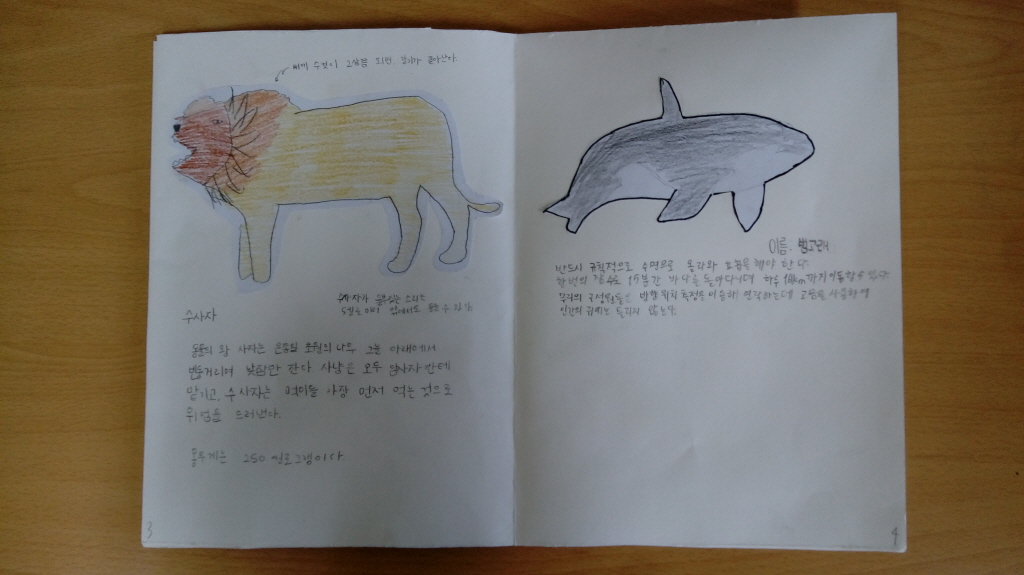 새끼 수컷이 2살쯤 되면, 갈기가 돋아난다.
수사자가 울부짖는 소리는
5킬로미터 밖에서도 들을 수 있다
수사자
동물의 왕 사자는 온종일 초원의 나무 그늘 아래에서
빈둥거리며 낮잠만 잔다 사냥은 모두 암사자한테
맡기고, 수사자는 먹이를 가장 먼저 먹는 것으로
위엄을 드러낸다.
몸무게는 250 킬로그램이다.
3
이름. 범고래
반드시 규칙적으로 수면으로 올라와 호흡을 해야 한다.
한번의 호흡으로 15분간 바다를 돌아다니며 하루 km까지 이동할 수 있다.
무리의 구성원들은 반향 위치 측정을 이용해 연락하는데 고음을 사용하여
인간의 귀에는 들리지 않는다.
4